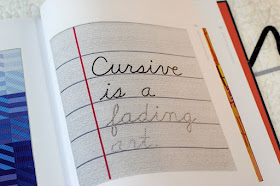 Cursive
is a
fading
art.